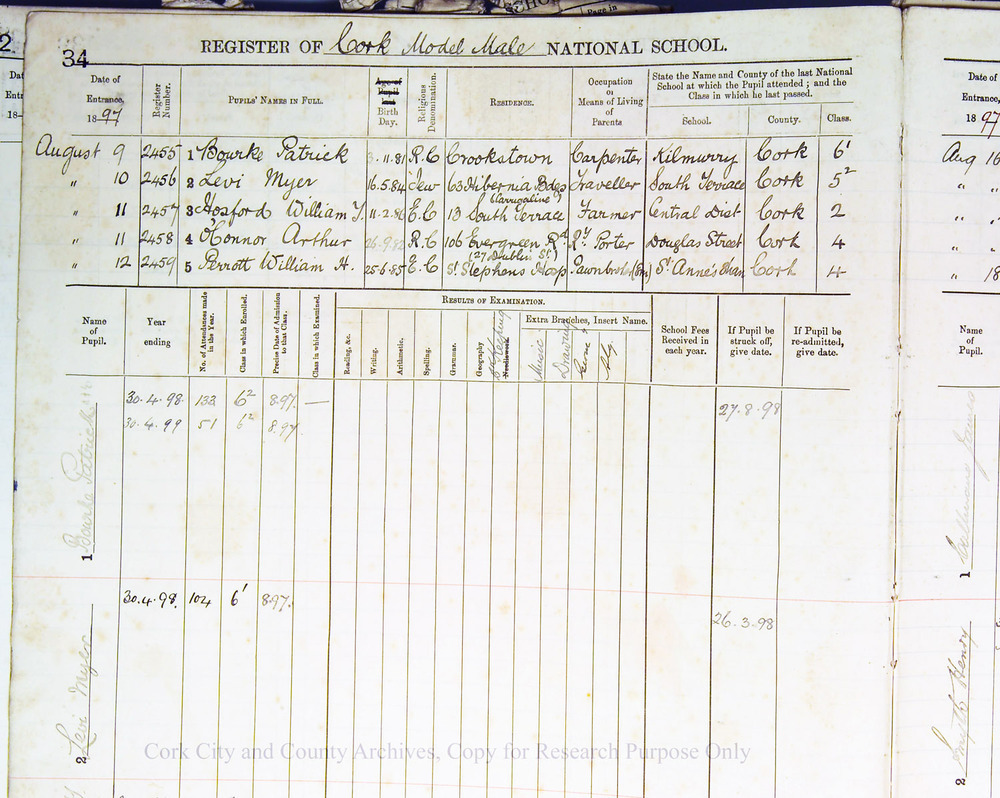 34
REGISTER OF Cork Model Male NATIONAL SCHOOL.
Date of Entrance, 1897
Register Number.
PUPILS' NAMES IN FULL.
Age of Pupil Birth Day.
Religious Denomination.
RESIDENCE.
Occupation or Means of Living of Parents
State the Name and County of the last National School at which the Pupil attended; and the Class in which he last passed.
School. County. Class.
August 9 2455 1 Bourke Patrick 3.11.81 R.C Crookstown Carpenter Kilmurry Cork 6¹
" 10 2456 2 Levi Myer 16.5.84 Jew 63 Hibernia Bdgs Traveller South Terrace Cork 5²
(Carrigaline)
" 11 2457 3 Hosford William T. 11.2.86 E.C 13 South Terrace Farmer Central Dist Cork 2
" 11 2458 4 O'Connor Arthur 26.9.82 R.C 106 Evergreen Rd Ry. Porter Douglas Street Cork 4
(27 Dublin St.)
" 12 2459 5 Perrott William H. 25.6.85 E.C St. Stephens Hosp Pawnbroker St. Anne's Cork 4
Name of Pupil.
Year ending
No. of Attendances made in the Year.
Class in which Enrolled.
Precise Date of Admission to that Class.
Class in which Examined.
RESULTS OF EXAMINATION.
Reading, &c.
Writing.
Arithmetic.
Spelling.
Grammar.
Geography
Needlework
Extra Branches, Insert Name.
Music
Drawing
Alg.
School Fees Received in each year.
If Pupil be struck off, give date.
If Pupil be re-admitted, give date.
1 Bourke Patrick
30.4.98 133 6² 8.97 —
27.8.98
30.4.99 51 6² 8.97
2 Levi Myer
30.4.98. 104 6¹ 8.97.
26.3.98
Date of Entrance, 1897
Aug 16
" "
" "
" "
" 18
Name of Pupil.
1 Callinane James
2 Smyth Henry
Cork City and County Archives, Copy for Research Purpose Only